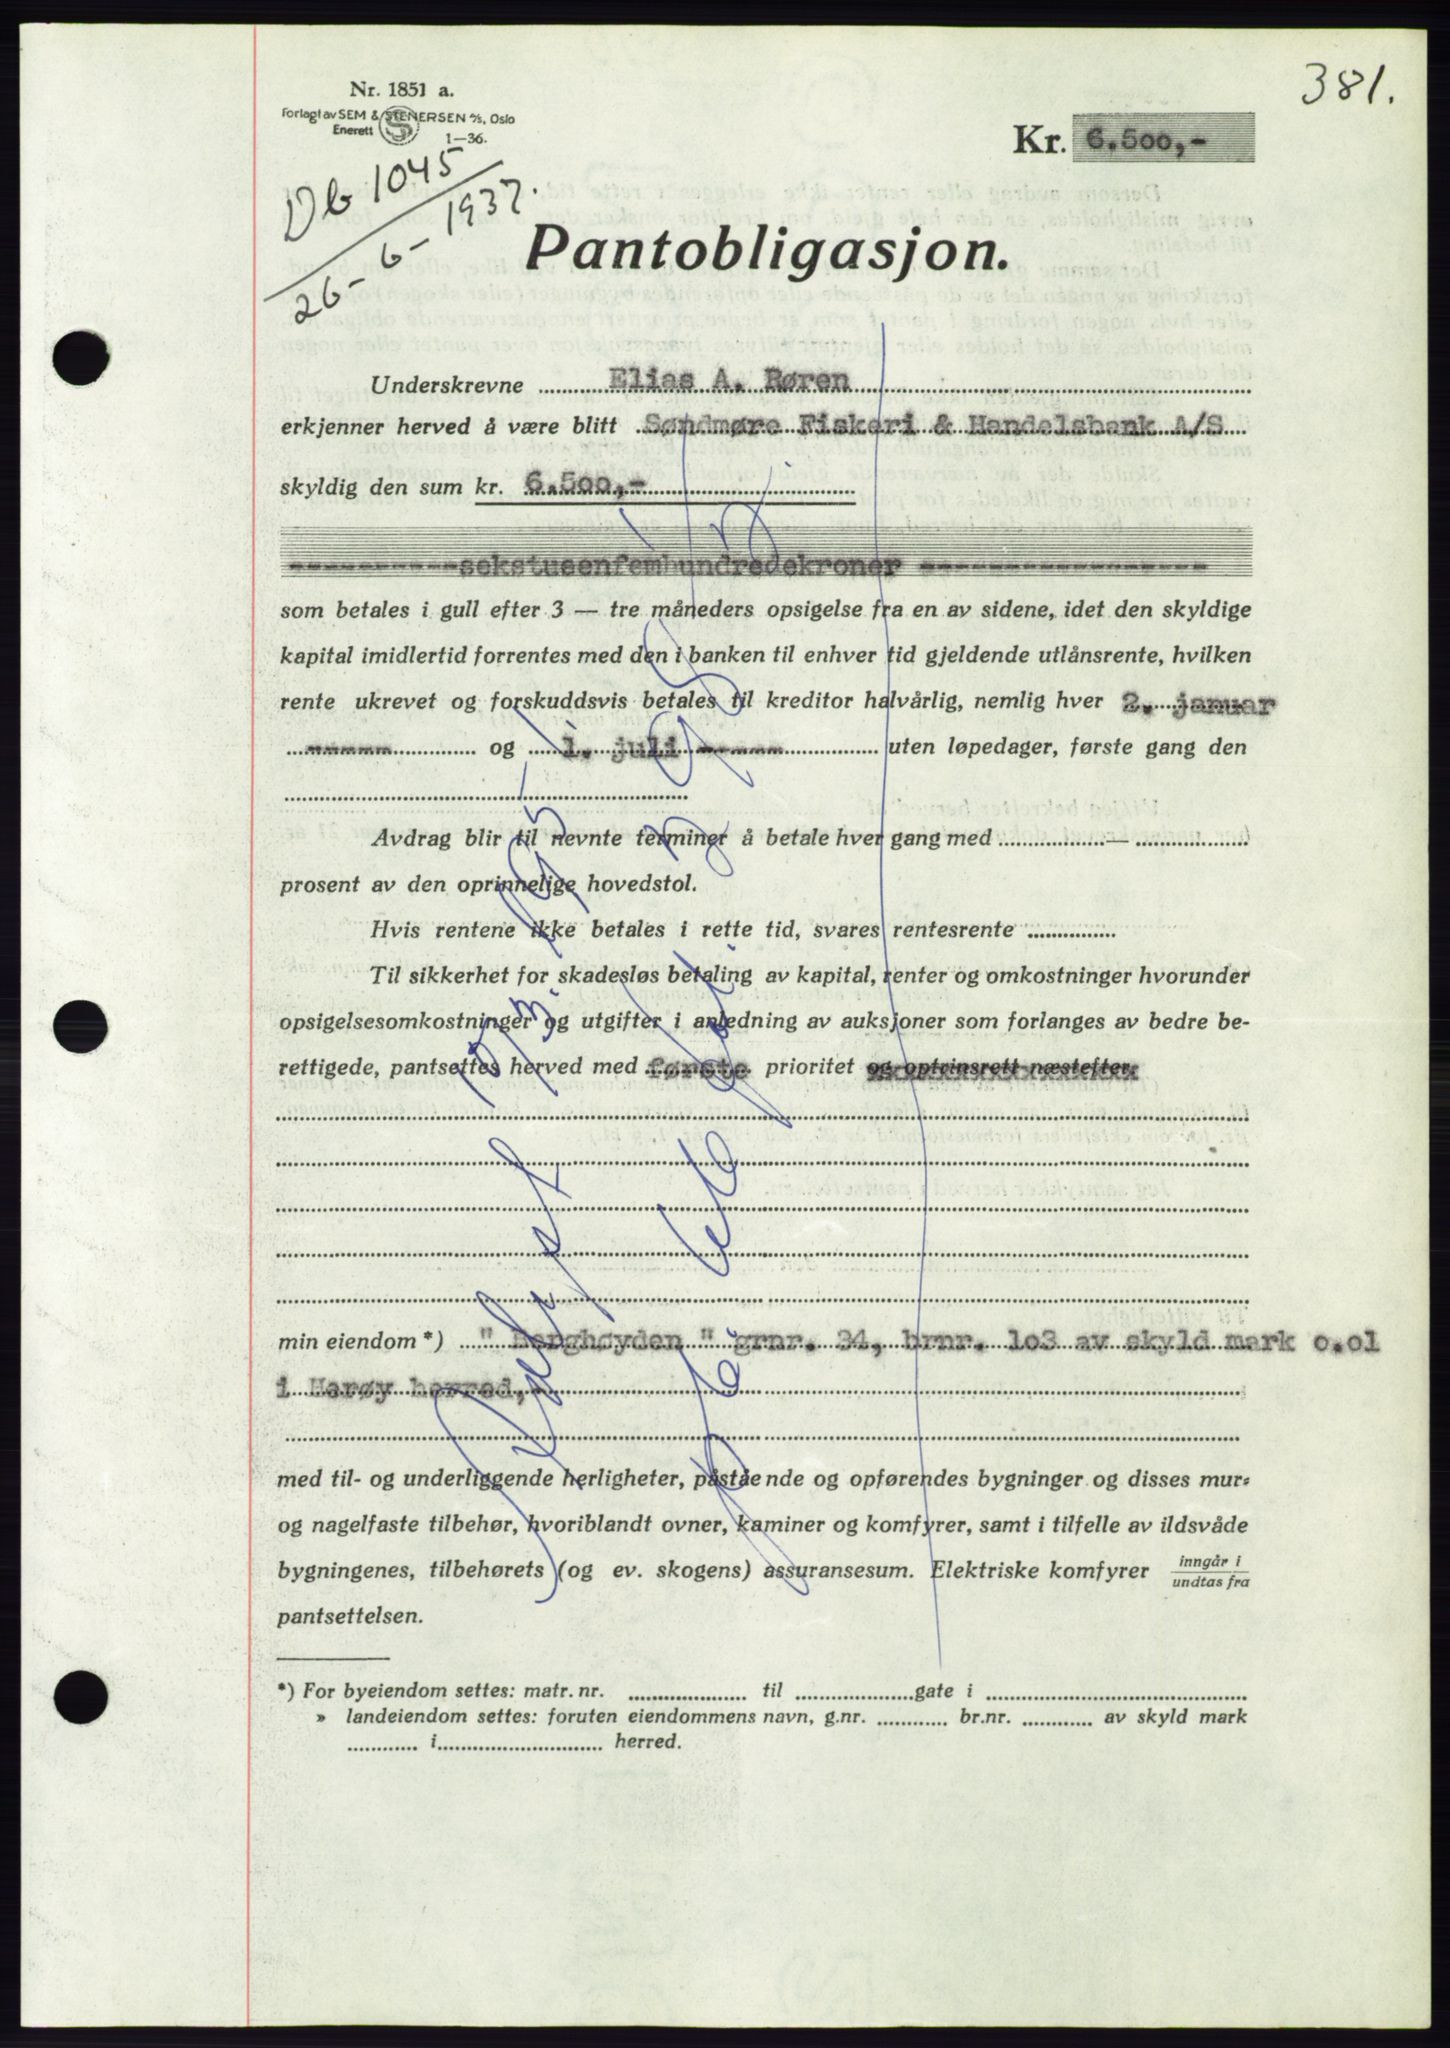 381.
Nr. 1851 a.
Forlagt av SEM & STENERSEN A/S, Oslo
Enerett
1—36.
Kr. 6.500,-
Db 1045
26-6-1937.
Pantobligasjon.
Underskrevne Elias A. Røren
erkjenner herved å være blitt Søndmøre Fiskeri & Handelsbank A/S
skyldig den sum kr. 6.500,-
---------sekstusenfemhundredekroner ---------------
som betales i gull efter 3 — tre måneders opsigelse fra en av sidene, idet den skyldige
kapital imidlertid forrentes med den i banken til enhver tid gjeldende utlånsrente, hvilken
rente ukrevet og forskuddsvis betales til kreditor halvårlig, nemlig hver 2. januar
------ og 1. juli ------ uten løpedager, første gang den
Avdrag blir til nevnte terminer å betale hver gang med —
prosent av den oprinnelige hovedstol.
Hvis rentene ikke betales i rette tid, svares rentesrente
Til sikkerhet for skadesløs betaling av kapital, renter og omkostninger hvorunder
opsigelsesomkostninger og utgifter i anledning av auksjoner som forlanges av bedre be-
rettigede, pantsettes herved med første prioritet og optrinsrett næstefter
min eiendom *) " Berghøyden " grnr. 34, brnr. 103 av skyld mark 0.01
i Herøy herred,
med til- og underliggende herligheter, påstående og opførendes bygninger og disses mur-
og nagelfaste tilbehør, hvoriblandt ovner, kaminer og komfyrer, samt i tilfelle av ildsvåde
bygningenes, tilbehørets (og ev. skogens) assuransesum. Elektriske komfyrer inngår i / undtas fra
pantsettelsen.
*) For byeiendom settes: matr. nr. til gate i
» landeiendom settes: foruten eiendommens navn, g.nr. br.nr. av skyld mark
i herred.